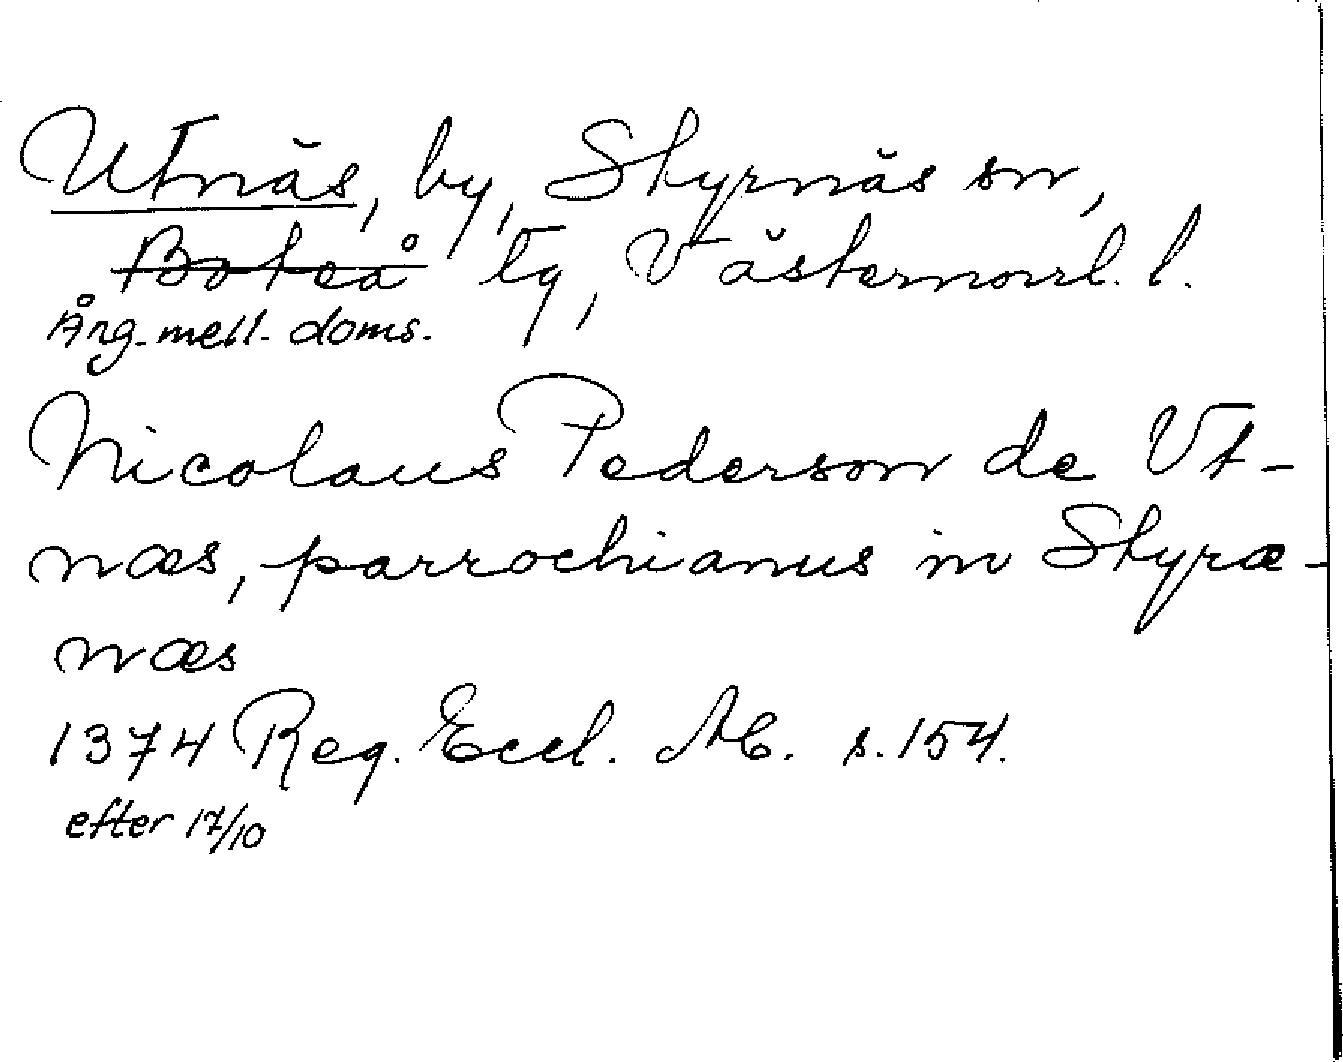 Utnäs, by, Styrnäs sn,
Boteå tg, Västernorrl. l.
Ång. mell. doms.
Nicolaus Pederson de Vt-
næs, parrochianus in Styræ-
næs
1374 Reg. Eccl. AE. s. 154.
efter 17/10